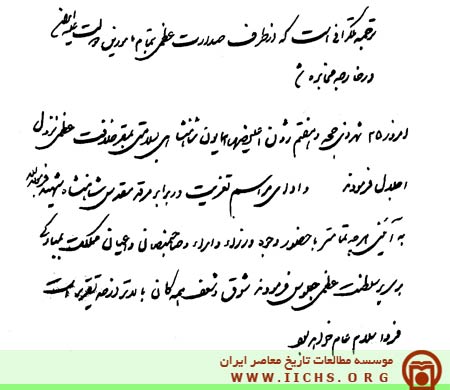 ترجمه تلگرافی است که از طرف صدارت عظمی بتمام مامورین دولت علیه ایران
در خارجه مخابره شد
امروز ۲۵ شهر ذی حجه و هفتم ژوئن اعلیحضرت همایون شاهنشاهی بسلامتی بمقر خلافت عظمی نزول
اجلال فرمودند و ادای مراسم تعزیت در برابر مرقد مقدس شاهنشاه شهید
به آئینی هر چه تمامتر با حضور وجوه وزراء و امراء و صاحبمنصبان و اعیان مملکت بمبارکی
بر سریر سلطنت عظمی جلوس فرمودند شوق و شعف همه کان بالاتر از حد تقریر است
فردا سلام عام خواهد بود
موسسه مطالعات تاریخ معاصر ایران
WWW.IICHS.ORG